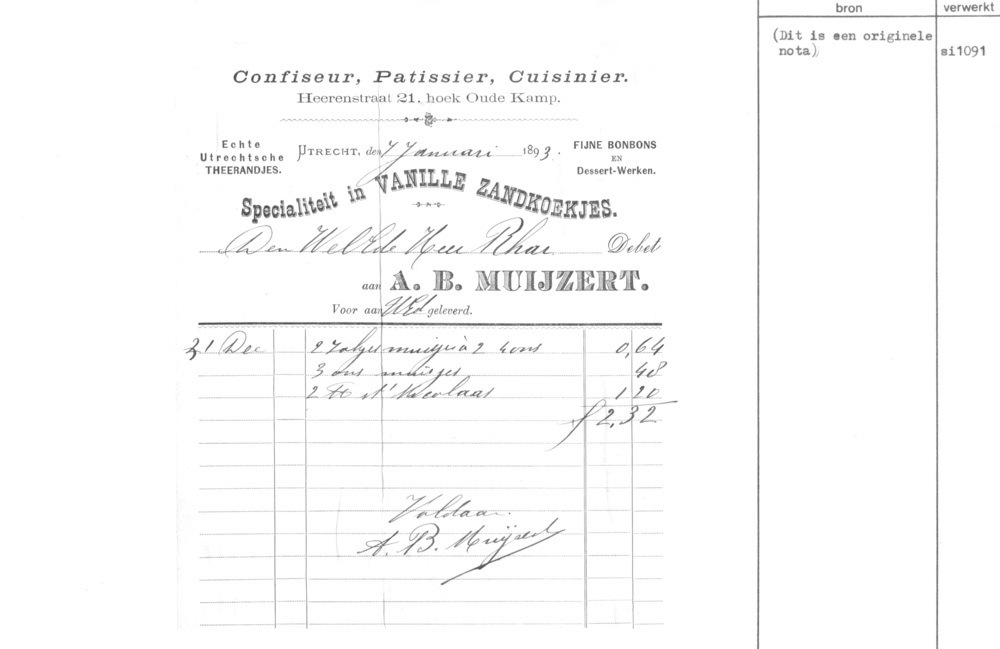 bron
verwerkt
(Dit is een originele
nota)
si1091
Confiseur, Patissier, Cuisinier.
Heerenstraat 21, hoek Oude Kamp.
Echte
Utrechtsche
THEERANDJES.
UTRECHT, den 7 Januari 1893.
FIJNE BONBONS
EN
Dessert-Werken.
Specialiteit in VANILLE ZANDKOEKJES.
Den WelEde Heer Debet
aan A. B. MUIJZERT.
Voor aan UEd geleverd.
31 Dec 2 muisjes à 2 0,64
3 ons muisjes 48
2 St Nicolaas 1 20
f 2,32
Voldaan
A. B. Muijzert